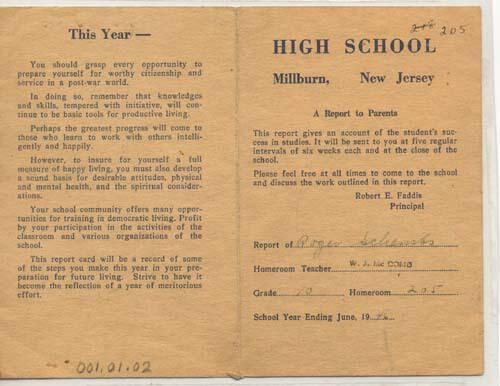 This Year —
You should grasp every opportunity to
prepare yourself for worthy citizenship and
service in a post-war world.
In doing so, remember that knowledges
and skills, tempered with initiative, will con-
tinue to be basic tools for productive living.
Perhaps the greatest progress will come to
those who learn to work with others intelli-
gently and happily.
However, to insure for yourself a full
measure of happy living, you must also develop
a sound basis for desirable attitudes, physical
and mental health, and the spiritual consider-
ations.
Your school community offers many oppor-
tunities for training in democratic living. Profit
by your participation in the activities of the
classroom and various organizations of the
school.
This report card will be a record of some
of the steps you make this year in your prep-
aration for future living. Strive to have it
become the reflection of a year of meritorious
effort.
001.01.02
205
HIGH SCHOOL
Millburn, New Jersey
A Report to Parents
This report gives an account of the student's suc-
cess in studies. It will be sent to you at five regular
intervals of six weeks each and at the close of the
school.
Please feel free at all times to come to the school
and discuss the work outlined in this report.
Robert E. Faddis
Principal
Report of Roger Schembs
Homeroom Teacher W. J. Mc COMB
Grade 10 Homeroom 205
School Year Ending June, 19